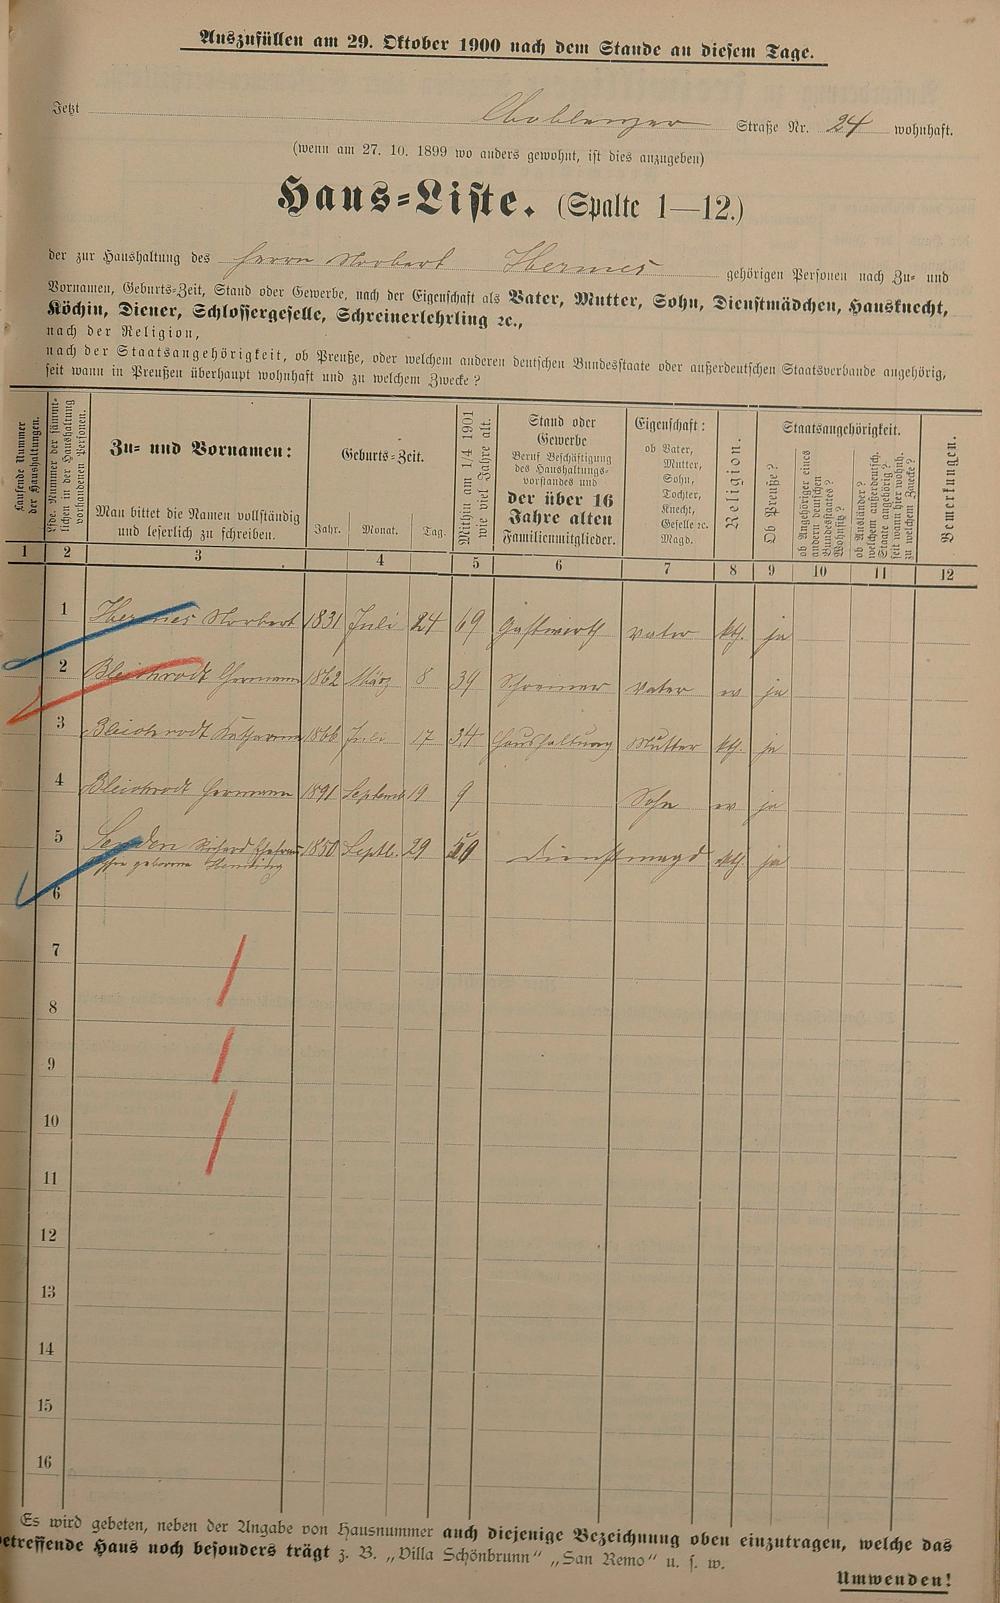 Auszufüllen am 29. Oktober 1900 nach dem Stande an diesem Tage.
Jetzt Coblenzer Straße Nr. 24 wohnhaft.
(wenn am 27. 10. 1899 wo anders gewohnt, ist dies anzugeben)
Haus-Liste. (Spalte 1—12.)
der zur Haushaltung des Herrn Norbert Hermes gehörigen Personen nach Zu- und
Vornamen, Geburts-Zeit, Stand oder Gewerbe, nach der Eigenschaft als Vater, Mutter, Sohn, Dienstmädchen, Hausknecht,
Köchin, Diener, Schlossergeselle, Schreinerlehrling ec.,
nach der Religion,
nach der Staatsangehörigkeit, ob Preuße, oder welchem anderen deutschen Bundesstaate oder außerdeutschen Staatsverbande angehörig,
seit wann in Preußen überhaupt wohnhaft und zu welchem Zwecke?
Laufende Nummer der Haushaltungen.
Lfde. Nummer der sämmtlichen in der Haushaltung vorhandenen Personen.
Zu- und Vornamen:
Man bittet die Namen vollständig
und leserlich zu schreiben.
Geburts-Zeit.
Jahr. Monat. Tag.
Mithin am 1/4 1901 wie viel Jahre alt.
Stand oder
Gewerbe
Beruf Beschäftigung
des Haushaltungs-
vorstandes und
der über 16
Jahre alten
Familienmitglieder.
Eigenschaft:
ob Vater,
Mutter,
Sohn,
Tochter,
Knecht,
Geselle ec.
Magd.
Religion.
Staatsangehörigkeit.
Ob Preuße?
ob Angehöriger eines andern deutschen Bundesstaates? Wohnsitz?
ob Ausländer? welchem außerdeutsch. Staate angehörig? seit wann hier wohnh. zu welchem Zwecke?
Bemerkungen.
1 2 3 4 5 6 7 8 9 10 11 12
1 Hermes Norbert 1831 Juli 24 69 Gastwirth Vater kth. ja
2 Bleichrodt Hermann 1862 März 8 39 Schreiner Vater ev ja
3 Bleichrodt Katharina 1866 Juli 17 34 Haushaltung Mutter kth. ja
4 Bleichrodt Hermann 1891 Septemb. 19 9 Sohn ev ja
5 Senden Richard Ehefrau 1850 Septb. 29 50 Dienstmagd kth. ja
geborene
6
7
8
9
10
11
12
13
14
15
16
Es wird gebeten, neben der Angabe von Hausnummer auch diejenige Bezeichnung oben einzutragen, welche das
betreffende Haus noch besonders trägt z. B. „Villa Schönbrunn“ „San Remo“ u. s. w.
Umwenden!